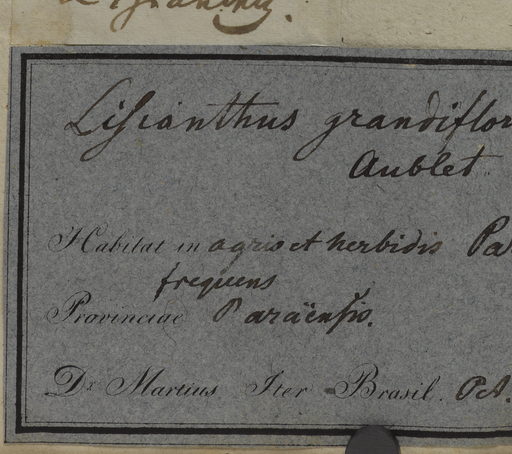 Liſianthus grandiflor
Aublet
Habitat in agris et herbidis Pa
frequens
Provinciae Paraënſis.
Dr Martius Iter Brasil.